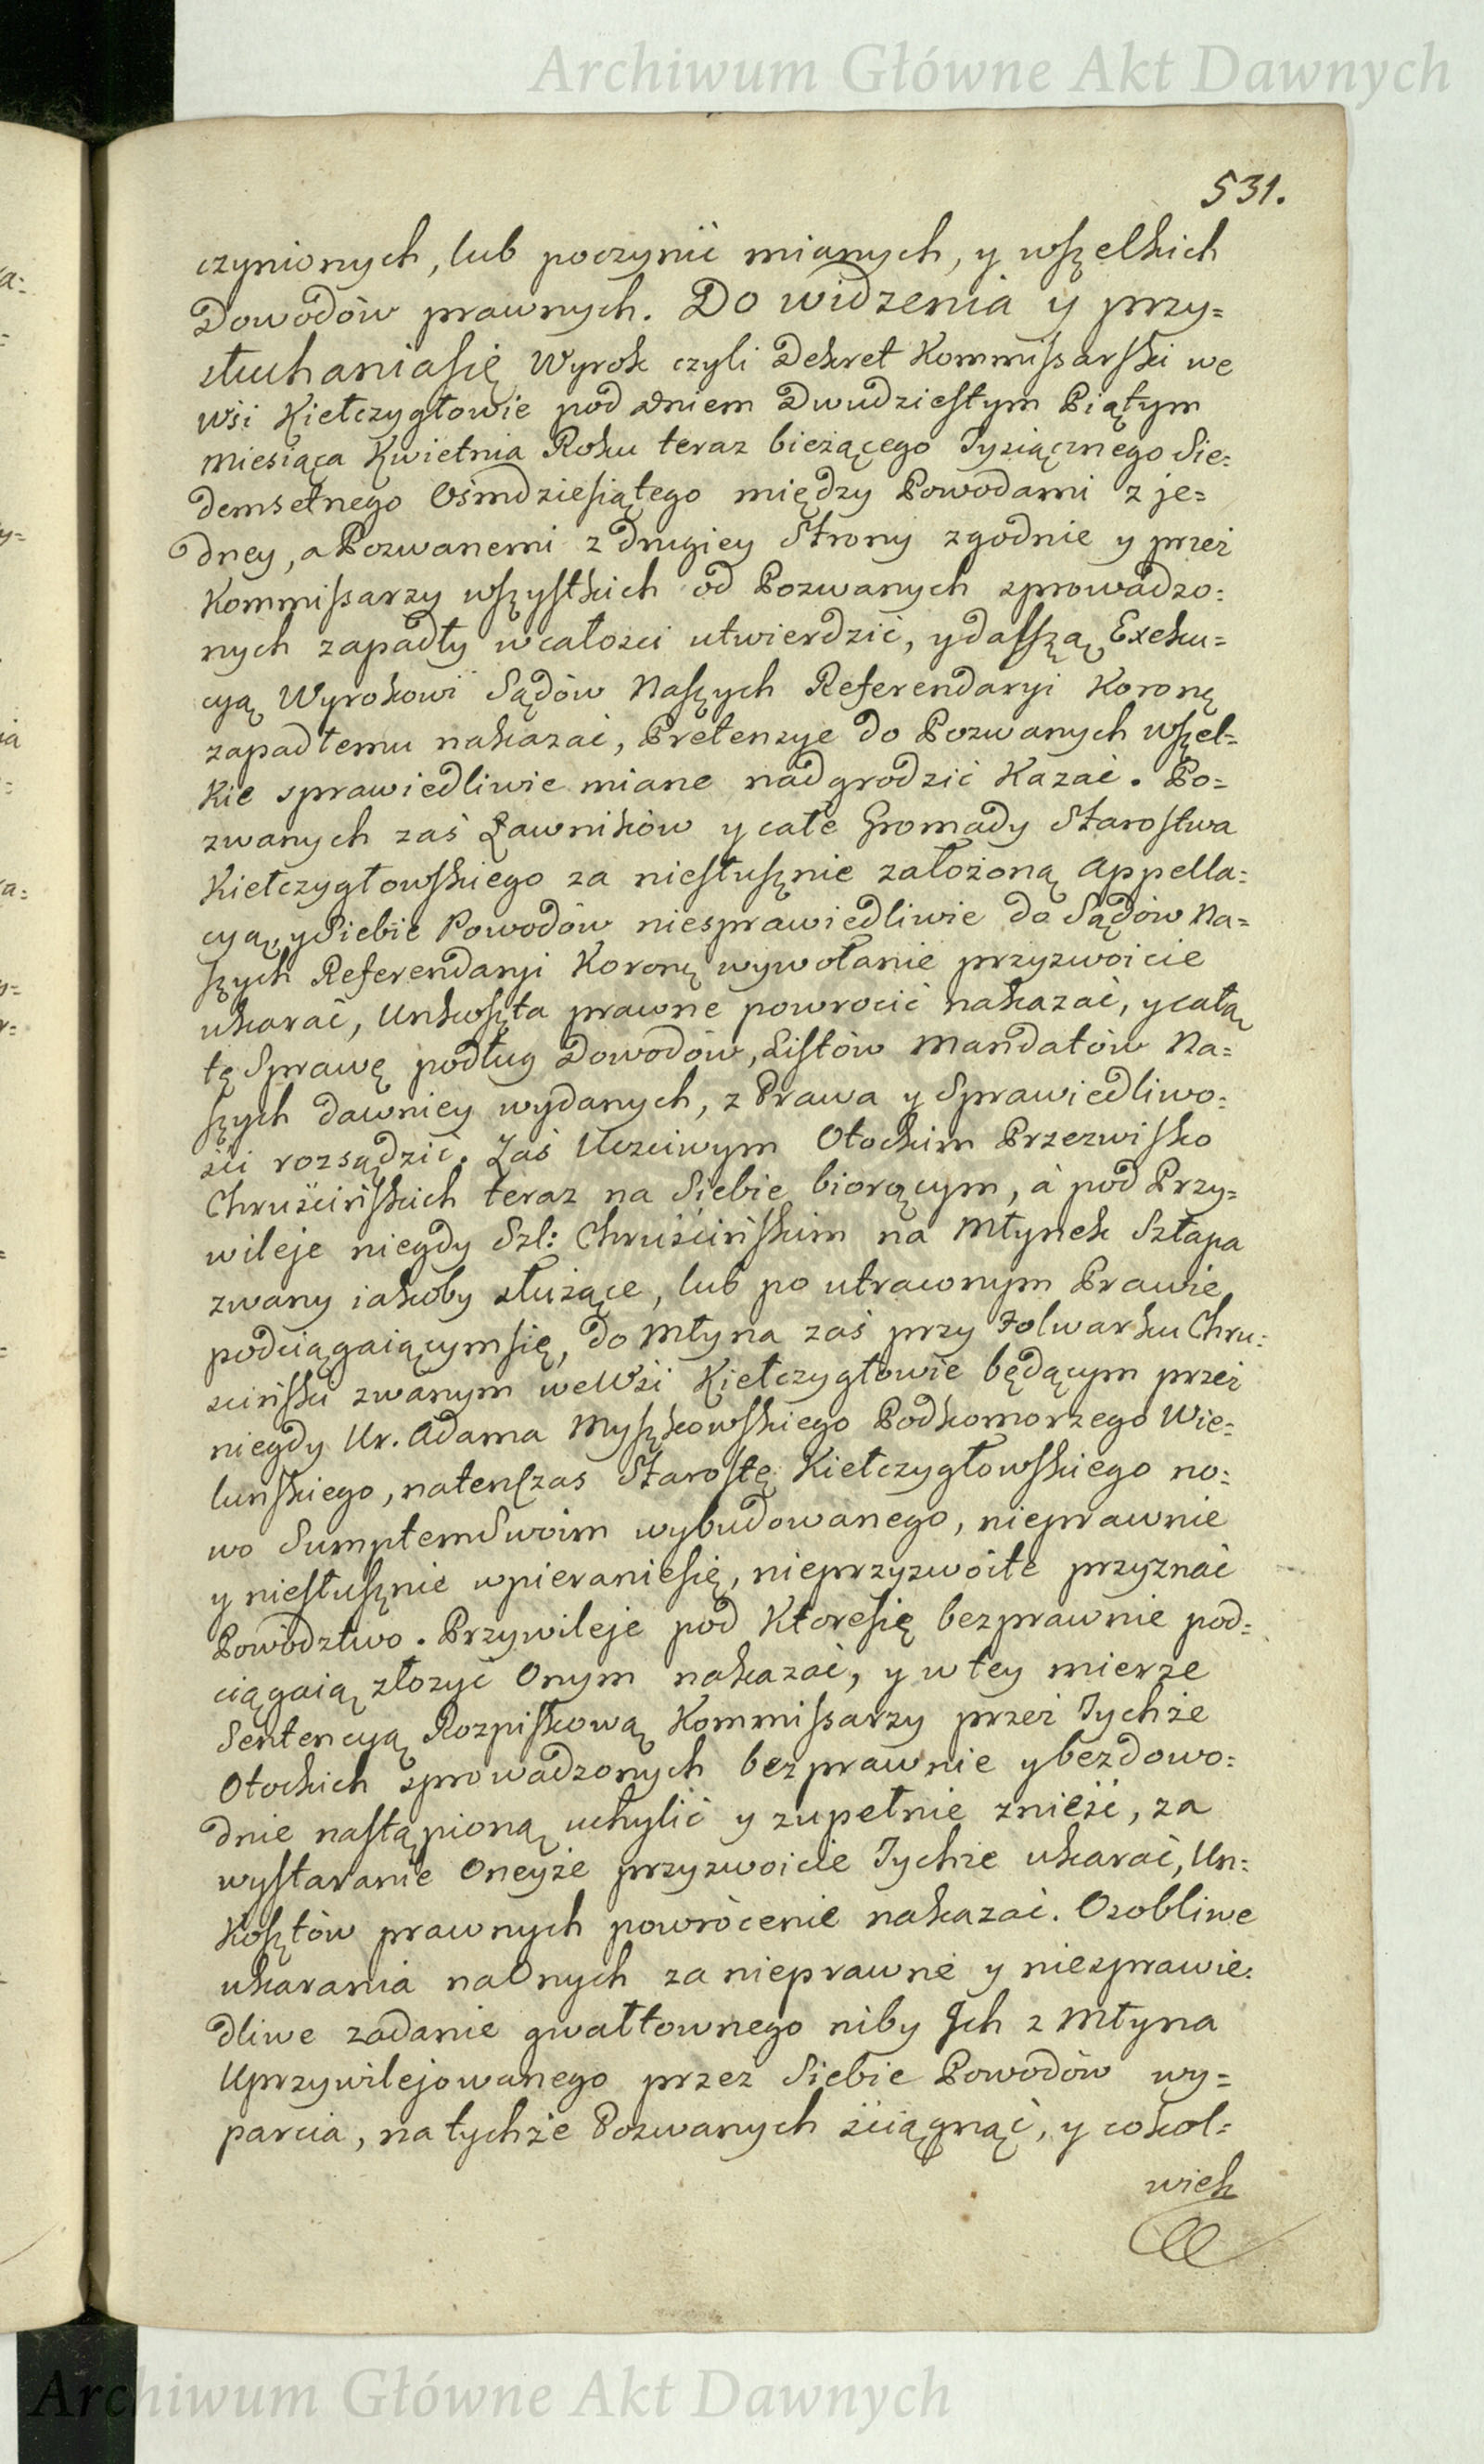 Archiwum Główne Akt Dawnych
531.
czynionych, lub poczynić mianych, y wszelkich
Dowodów prawnych. Do widzenia y przy=
słuchania się Wyrok czyli Dekret Kommissarski we
Wśi Kiełczygłowie pod dniem Dwudziestym Piątym
Miesiąca Kwietnia Roku teraz bieżącego Tysiącznego Sie=
demsetnego Ośmdziesiątego między Powodami z je=
dney, a Pozwanemi z drugiey Strony zgodnie y przez
Kommissarzy wszystkich od Pozwanych sprowadzo=
nych zapadły w całosci utwierdzić, y dalszą Exeku=
cyą Wyrokowi Sądów Naszych Referendaryi Koronę
zapadłemu nakazać, Pretensye do Pozwanych wszel=
kie sprawiedliwie miane nadgrodzić Kazać. Po=
zwanych zaś Ławników y całe Gromady Starostwa
Kiełczygłowskiego za niesłusznie założoną Appella=
cyą, y Siebie Powodów niesprawiedliwie do Sądów Na=
szych Referendaryi Koronę wywołanie przyzwoicie
ukarać, Unkoszta prawne powrocić nakazać, y całą
tę Sprawę podług Dowodów, Listów Mandatów Na=
szych dawniey wydanych, z Prawa y Sprawiedliwo=
śći rozsądzić. Zaś Uczciwym Otockim Przezwisko
Chruścińskich teraz na Siebie biorącym, à pod Przy=
wileje niegdy Szl: Chruścińskim na Młynek Sztapa
zwany iakoby służące, lub po utraconym Prawie
podciągaiącym się, do Młyna zaś przy Folwarku Chru=
scińsku zwanym we Wśi Kiełczygłowie będącym przez
niegdy Ur. Adama Myszkowskiego Podkomorzego Wie=
luńskiego, natenczas Starostę Kiełczygłowskiego no=
wo Sumptem Swoim wybudowanego, nieprawnie
y niesłusznie wpieranie się, nieprzyzwoite przyznać
Powództwo. Przywileje pod Ktore się bezprawnie pod=
ciągaią złożyć Onym nakazać, y w tey mierze
Sentencyą Rozpiskową Kommissarzy przez Tychże
Otockich sprowadzonych bezprawnie y bezdowo=
dnie nastąpioną uchylić y zupełnie znieść, za
wystaranie Oneyże przyzwoicie Tychże ukarać, Un=
kosztów prawnych powrócenie nakazać. Osobliwe
ukarania na Onych za nieprawne y niesprawie=
dliwe zadanie gwałtownego niby Ich z Młyna
Uprzywilejowanego przez Siebie Powodów wy=
parcia, na tychże Pozwanych śćiągnąć, y cokol=
wiek
Archiwum Główne Akt Dawnych